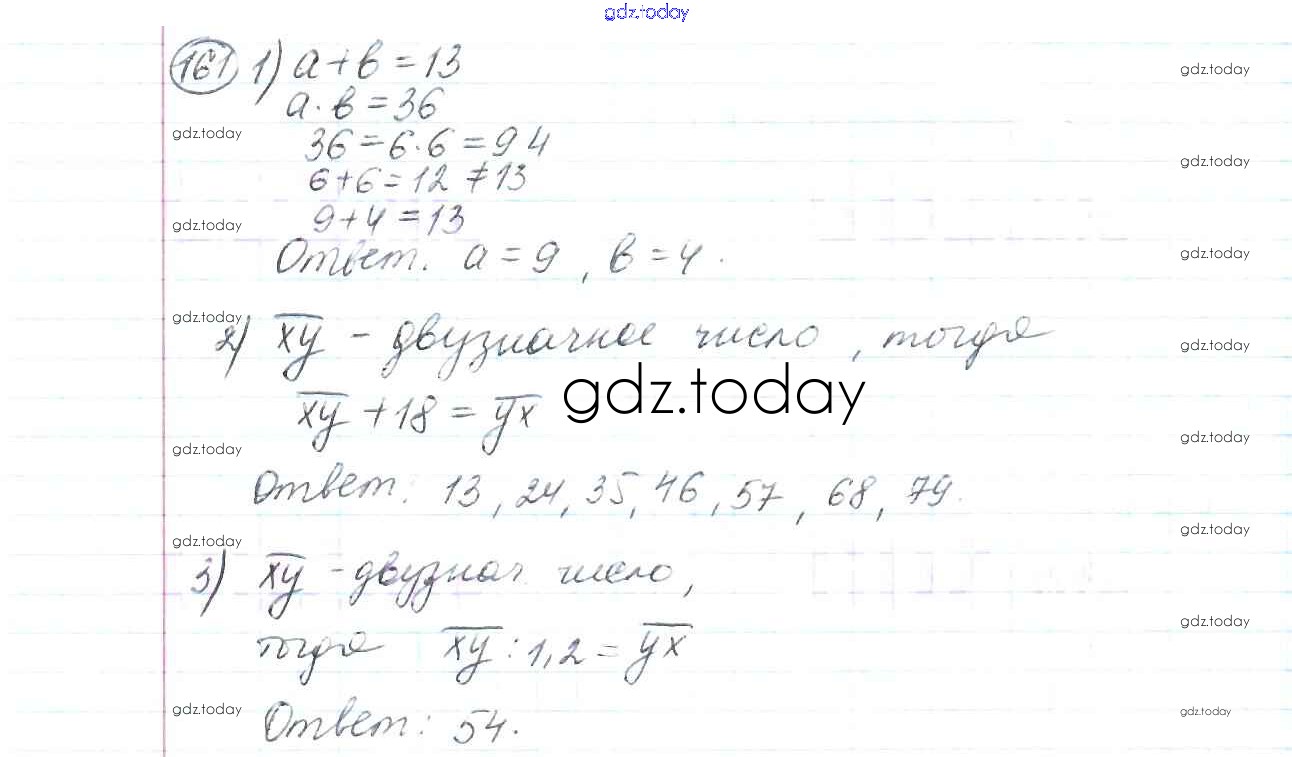 gdz.today
161 1) a+b=13
gdz.today
a·b=36
gdz.today
36=6·6=9 4
gdz.today
6+6=12 ≠13
gdz.today
9+4=13
Ответ. a=9, b=4.
gdz.today
gdz.today
2) xy - двузначное число, тогда
gdz.today
xy+18=yx
gdz.today
gdz.today
gdz.today
Ответ: 13, 24, 35, 46, 57, 68, 79.
gdz.today
gdz.today
3) xy - двузнач число,
gdz.today
тогда xy : 1,2 = yx
gdz.today
gdz.today
Ответ: 54.